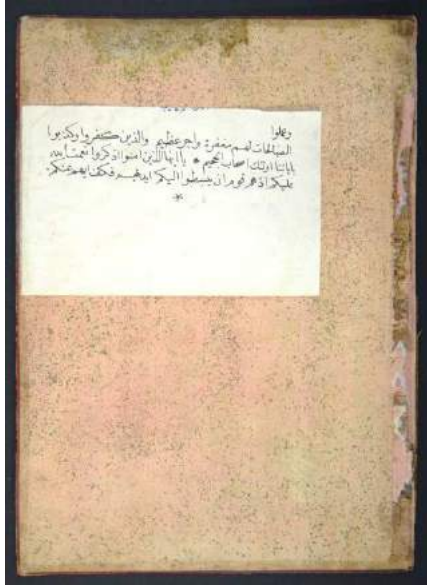 وعملوا
الصالحات لهم مغفرة واجر عظيم والذين كفروا وكذبوا
باياتنا اولئك اصحاب الجحيم * يا ايها الذين امنوا اذكروا نعمت الله
عليكم اذ هم قوم ان يبسطوا اليكم ايديهم فكف ايديهم عنكم
*